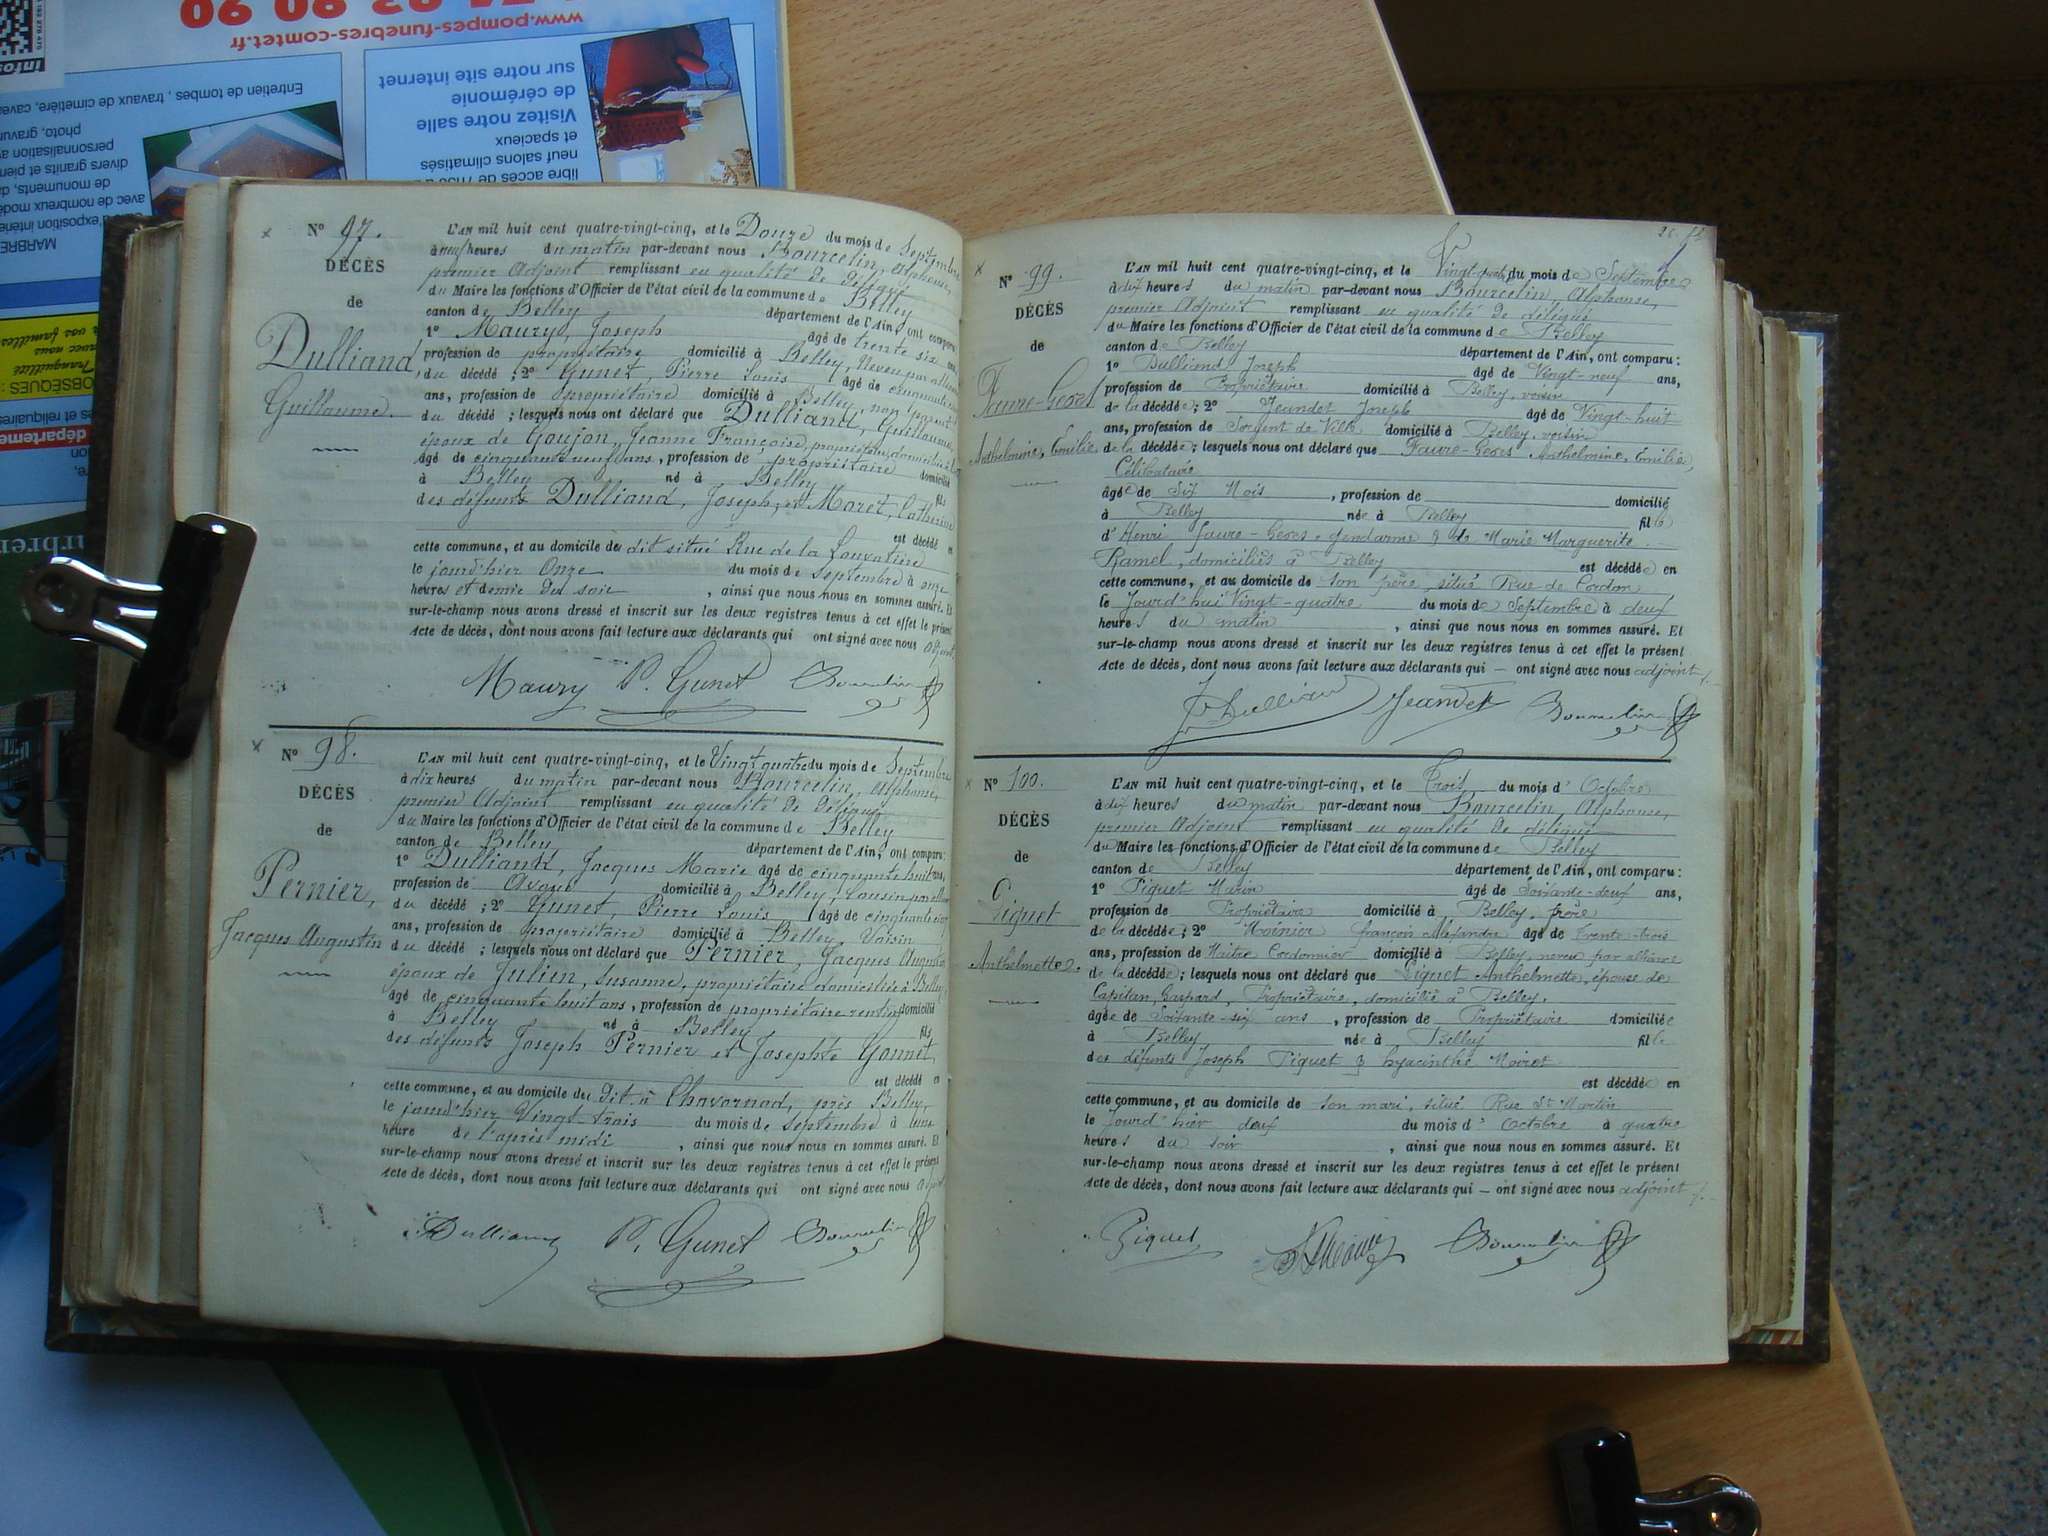 74 83 90 90
www.pompes-funebres-comtet.fr
Entretien de tombes, travaux de cimetière,
photo,
personnalisation
divers granits et
de monuments,
avec de nombreux
d'exposition
MARBRE
libre accès de
neuf salons climatisés
et spacieux
Visitez notre salle
de cérémonie
sur notre site internet
Tranquillité
avec nous
vos familles
OBSÈQUES
Nº 97.
DÉCÈS
de
Dulliand,
Guillaume.
L'AN mil huit cent quatre-vingt-cinq, et le Douze du mois de Septembre
à neuf heures du matin par-devant nous Bourcelin, Alphonse,
premier Adjoint remplissant en qualité de délégué
du Maire les fonctions d'Officier de l'état civil de la commune de Belley
canton de Belley département de l'Ain, ont comparu:
1º Maury, Joseph âgé de trente six ans,
profession de propriétaire domicilié à Belley, Neveu par alliance
du décédé; 2º Gunet, Pierre Louis âgé de cinquante
ans, profession de propriétaire domicilié à Belley, non parent
du décédé; lesquels nous ont déclaré que Dulliand, Guillaume,
époux de Goujon, Jeanne Françoise, propriétaire, domicilié à
âgé de cinquante neuf ans, profession de propriétaire domicilié
à Belley né à Belley fils
des défunts Dulliand, Joseph, et Moret, Catherine
est décédé en
cette commune, et au domicile du dit situé Rue de la Louvatière
le jourd'hier Onze du mois de Septembre à onze
heures et demie du soir, ainsi que nous nous en sommes assuré. Et
sur-le-champ nous avons dressé et inscrit sur les deux registres tenus à cet effet le présent
acte de décès, dont nous avons fait lecture aux déclarants qui ont signé avec nous adjoint.
Maury P. Gunet Bourcelin
Nº 98.
DÉCÈS
de
Pernier,
Jacques Augustin
L'AN mil huit cent quatre-vingt-cinq, et le Vingt quatre du mois de Septembre
à dix heures du matin par-devant nous Bourcelin, Alphonse,
premier Adjoint remplissant en qualité de délégué
du Maire les fonctions d'Officier de l'état civil de la commune de Belley
canton de Belley département de l'Ain, ont comparu:
1º Dulliand, Jacques Marie âgé de cinquante huit ans,
profession de Avoué domicilié à Belley, Cousin par alliance
du décédé; 2º Gunet, Pierre Louis âgé de cinquante
ans, profession de propriétaire domicilié à Belley, Voisin
du décédé; lesquels nous ont déclaré que Pernier, Jacques Augustin
époux de Julien, Susanne, propriétaire domiciliée à Belley,
âgé de cinquante huit ans, profession de propriétaire rentier domicilié
à Belley né à Belley fils
des défunts Joseph Pernier et Josephte Gonnet,
est décédé en
cette commune, et au domicile du dit à Chavornod, près Belley,
le jourd'hier Vingt trois du mois de Septembre à une
heure de l'après midi, ainsi que nous nous en sommes assuré. Et
sur-le-champ nous avons dressé et inscrit sur les deux registres tenus à cet effet le présent
acte de décès, dont nous avons fait lecture aux déclarants qui ont signé avec nous adjoint
Dulliand P. Gunet Bourcelin
Nº 99.
DÉCÈS
de
Favre-Geors
Anthelmine, Emilie
L'AN mil huit cent quatre-vingt-cinq, et le Vingt-quatre du mois de Septembre
à dix heures du matin par-devant nous Bourcelin, Alphonse,
premier Adjoint remplissant en qualité de délégué
du Maire les fonctions d'Officier de l'état civil de la commune de Belley
canton de Belley département de l'Ain, ont comparu:
1º Dulliand Joseph âgé de Vingt-neuf ans,
profession de Propriétaire domicilié à Belley, voisin
de la décédée; 2º Jeandet Joseph âgé de Vingt-huit
ans, profession de Sergent de Ville domicilié à Belley, voisin
de la décédée; lesquels nous ont déclaré que Favre-Geors Anthelmine, Emilie,
Célibataire
âgée de Six Mois, profession de domicilié
à Belley née à Belley fille
d'Henri Favre-Geors, Gendarme & de Marie Marguerite
Ramel, domiciliés à Belley est décédée en
cette commune, et au domicile de son père, situé Rue de Cordon
le Jourd'hui Vingt-quatre du mois de Septembre à deux
heures du matin, ainsi que nous nous en sommes assuré. Et
sur-le-champ nous avons dressé et inscrit sur les deux registres tenus à cet effet le présent
acte de décès, dont nous avons fait lecture aux déclarants qui — ont signé avec nous adjoint /.
J. Dulliand Jeandet Bourcelin
Nº 100.
DÉCÈS
de
Piguet
Anthelmette.
L'AN mil huit cent quatre-vingt-cinq, et le Trois du mois d'Octobre
à dix heures du matin par-devant nous Bourcelin, Alphonse,
premier Adjoint remplissant en qualité de délégué
du Maire les fonctions d'Officier de l'état civil de la commune de Belley
canton de Belley département de l'Ain, ont comparu:
1º Piguet Marin âgé de Soixante-deux ans,
profession de Propriétaire domicilié à Belley, frère
de la décédée; 2º Moinier François Alexandre âgé de Trente-trois
ans, profession de Maître Cordonnier domicilié à Belley, neveu par alliance
de la décédée; lesquels nous ont déclaré que Piguet Anthelmette, épouse de
Capitan, Gaspard, Propriétaire, domicilié à Belley.
âgée de Soixante-six ans, profession de Propriétaire domiciliée
à Belley née à Belley fille
des défunts Joseph Piguet & Hyacinthe Moiret
est décédée en
cette commune, et au domicile de son mari, situé Rue St Martin
le Jourd'hier deux du mois d'Octobre à quatre
heures du soir, ainsi que nous nous en sommes assuré. Et
sur-le-champ nous avons dressé et inscrit sur les deux registres tenus à cet effet le présent
acte de décès, dont nous avons fait lecture aux déclarants qui — ont signé avec nous adjoint /.
Piguet Bourcelin